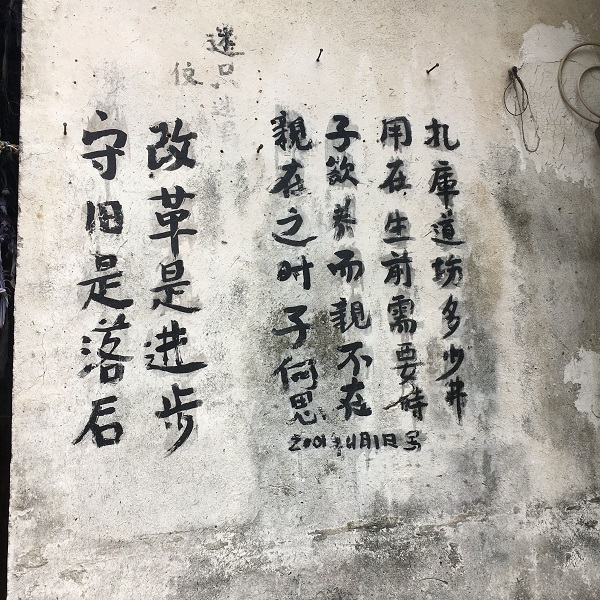 扎库道场多少弗
用在生前需要時
子欲养而親不在
親在之时子何思
2001年4月1日写
改革是进步
守旧是落后
迷只